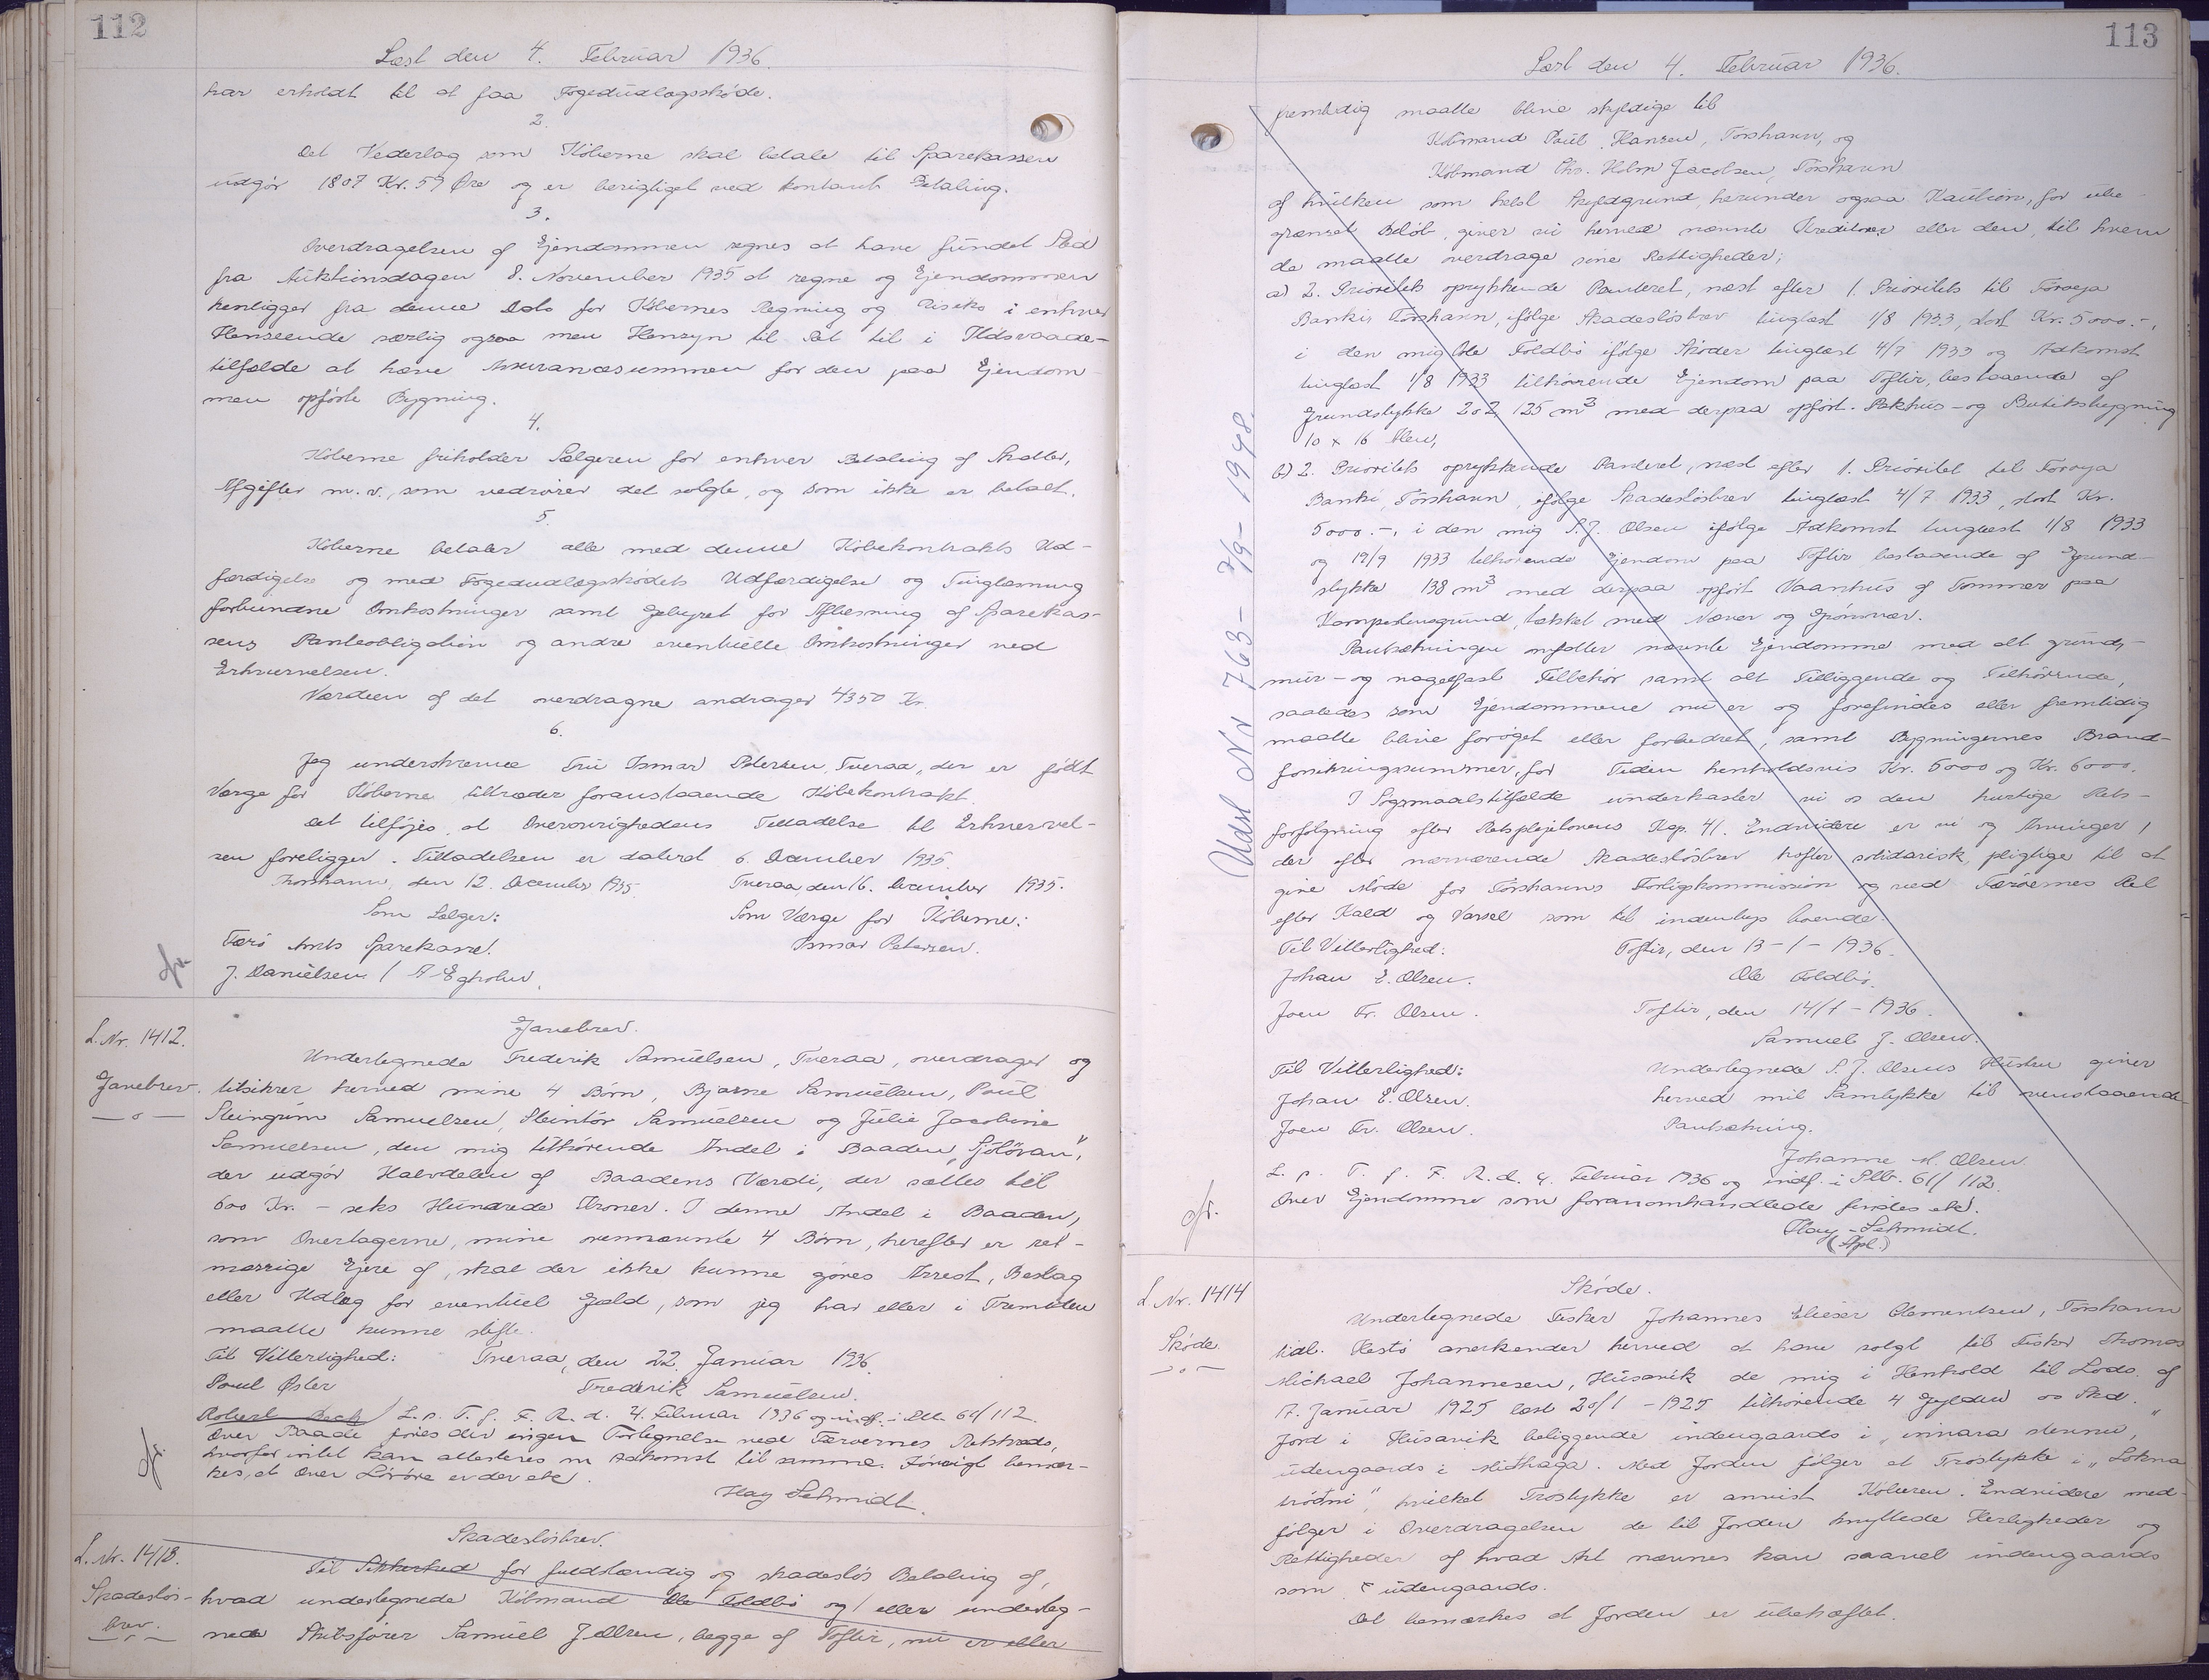 112
Læst den 4. Februar 1936.
har erholdt til at faa Fogedudlægsskøde.
2.
Det Vederlag som Køberne skal betale til Sparekassen
udgør 1807 Kr. 59 Øre og er berigtiget ved kontant Betaling.
3.
Overdragelsen af Ejendommen regnes at have fundet Sted
fra Auktionsdagen 8. November 1935 at regne og Ejendommen
henligger fra denne Dato for Købernes Regning og Risiko i enhver
Henseende særlig ogsaa men Hensyn til Ret til i Ildsvaade-
tilfælde at hæve Assurancesummen for den paa Ejendom-
men opførte Bygning.
4.
Køberne friholder Sælgeren for enhver Betaling af Skatter,
Afgifter m.v., som vedrører det solgte, og som ikke er betalt.
5.
Køberne betaler alle med denne Købekontrakts Ud-
færdigelse og med Fogedudlægsskødets Udfærdigelse og Tinglæsning
forbundne Omkostninger samt Gebyret for Aflæsning af Sparekas-
sens Panteobligation og andre eventuelle Omkostninger ved
Erhvervelsen.
Værdien af det overdragne andrager 4350 Kr.
6.
Jeg underskrevne Fru Ismar Petersen, Tveraa, der er født
Værge for Køberne tiltræder foranstaaende Købekontrakt.
Det tilføjes, at Overøvrighedens Tilladelse til Erhvervel-
sen foreligger. Tilladelsen er dateret 6. December 1935.
Thorshavn, den 12. December 1935. Tveraa, den 16. December 1935.
Som Sælger: Som Værge for Køberne:
Færø Amts Sparekasse. Ismar Petersen.
J. Danielsen / A. Egholm.
L. Nr. 1412.
Gavebrev.
Gavebrev.
Undertegnede Frederik Samuelsen, Tveraa, overdrager og
tilsikrer herved mine 4 Børn, Bjarne Samuelsen, Poul
Steingrim Samuelsen, Steintór Samuelsen og Julie Jacobine
Samuelsen, den mig tilhørende Andel i Baaden "Sjólövan",
der udgør Halvdelen af Baadens Værdi, der sættes til
600 Kr. - seks Hundrede Kroner. I denne Andel i Baaden,
som Overtagerne, mine ovennævnte 4 Børn, herefter er ret-
mæssige Ejere af, skal der ikke kunne gøres Arrest, Beslag
eller Udlæg for eventuel Gæld, som jeg har eller i Fremtiden
maatte kunne stifte.
Til Vitterlighed: Tveraa, den 22. Januar 1936.
Poul Øster Frederik Samuelsen.
Robert Bech L. p. T. f. F. R. d. 4. Februar 1936 og indf. i Plb. 61/112.
Over Baade føres der ingen Fortegnelse ved Færøernes Retskreds,
hvorfor intet kan attesteres m Adkomst til samme. Iøvrigt bemær-
kes, at Over Lösöre er der etc.
Hay Schmidt.
L. Nr. 1413.
Skadesløs-
brev.
Skadesløsbrev.
Til Sikkerhed for fuldstændig og skadesløs Betaling af,
hvad undertegnede Købmand Ole Toldbø og/eller underteg-
nede Skibsfører Samuel J. Olsen, begge af Toftir, nu er eller
113
Læst den 4. Februar 1936.
fremtidig maatte blive skyldige til
Købmand Poul Hansen, Tórshavn, og
Købmand Chr. Holm Jacobsen, Tórshavn
af hvilken som helst Skyldgrund, herunder ogsaa Kaution, for ube-
grænset Beløb, giver vi herved nævnte Kreditorer eller den, til hvem
de maatte overdrage sine Rettigheder;
a) 2. Prioritets oprykkende Panteret, næst efter 1. Prioritets til Føroya
Banki, Tórshavn, ifølge Skadesløsbrev tinglæst 1/8 1933, stort Kr. 5000.-,
i den mig Ole Toldbø ifølge Skøder tinglæst 4/7 1933 og Adkomst
tinglæst 1/8 1933 tilhørende Ejendom paa Toftir, bestaaende af
Grundstykke 202,125 m2 med derpaa opført Pakhus- og Butiksbygning
10 x 16 Alen,
b) 2. Prioritets oprykkende Panteret, næst efter 1. Prioritet til Føroya
Banki, Tórshavn, ifølge Skadesløsbrev tinglæst 4/7 1933, stort Kr.
5000.-, i den mig S.J. Olsen ifølge Adkomst tinglæst 1/8 1933
og 19/9 1933 tilhørende Ejendom paa Toftir bestaaende af Grund-
stykke 138 m2 med derpaa opført Vaanhus af Tømmer paa
Kampestensgrund, tækket med Næver og Grønsvær.
Pantsætningen omfatter nævnte Ejendomme med alt grund-,
mur- og nagelfast Tilbehør samt alt Tilliggende og Tilhørende,
saaledes som Ejendommene nu er og forefindes eller fremtidig
maatte blive forøget eller forbedret, samt Bygningernes Brand-
forsikringssummer, for Tiden henholdsvis Kr. 5000 og Kr. 6000.
I Søgsmaalstilfælde underkaster vi os den hurtige Rets-
forfølgning efter Retsplejelovens Kap. 41. Endvidere er vi og Arvinger,
der efter nærværende Skadesløsbrev hæfter solidarisk, pligtige til at
give Møde for Tórshavns Forligskommission og ved Færøernes Ret
efter Kald og Varsel som til indenbys boende.
Til Vitterlighed: Toftir, den 13-1-1936.
Johan E. Olsen. Ole Toldbø.
Joen Fr. Olsen. Toftir, den 14/1-1936.
Samuel J. Olsen.
Til Vitterlighed: Undertegnede S. J. Olsens Hustru giver
Johan E. Olsen. herved mit Samtykke til ovenstaaende
Joen Fr. Olsen. Pantsætning.
Johanne M. Olsen.
L. p. T. f. F. R. d. 4. Februar 1936 og indf. i Plb. 61/112.
Over Ejendomme som foranomhandlede findes etc.
Hay Schmidt.
(Apl.)
Udsl Nr 763 - 7/9 - 1948.
L. Nr. 1414
Skøde.
Skøde.
Undertegnede Fisker Johannes Elieser Clementsen, Tórshavn
tidl. Hestø anerkender herved at have solgt til Fisker Thomas
Michael Johannesen, Húsavik de mig i Henhold til Lods. af
17. Januar 1925 læst 20/1-1925 tilhørende 4 Gylden 00 Skd.
Jord i Húsavik beliggende indengaards i "innara stennu",
udengaards i Mithaga. Med Jorden følger et Tröstykke i "Lokna
tröðni", hvilket Tröstykke er anvist Køberen. Endvidere med-
følger i Overdragelsen de til Jorden knyttede Herligheder og
Rettigheder af hvad Art nævnes kan saavel indengaards
som udengaards.
Det bemærkes at Jorden er ubehæftet.